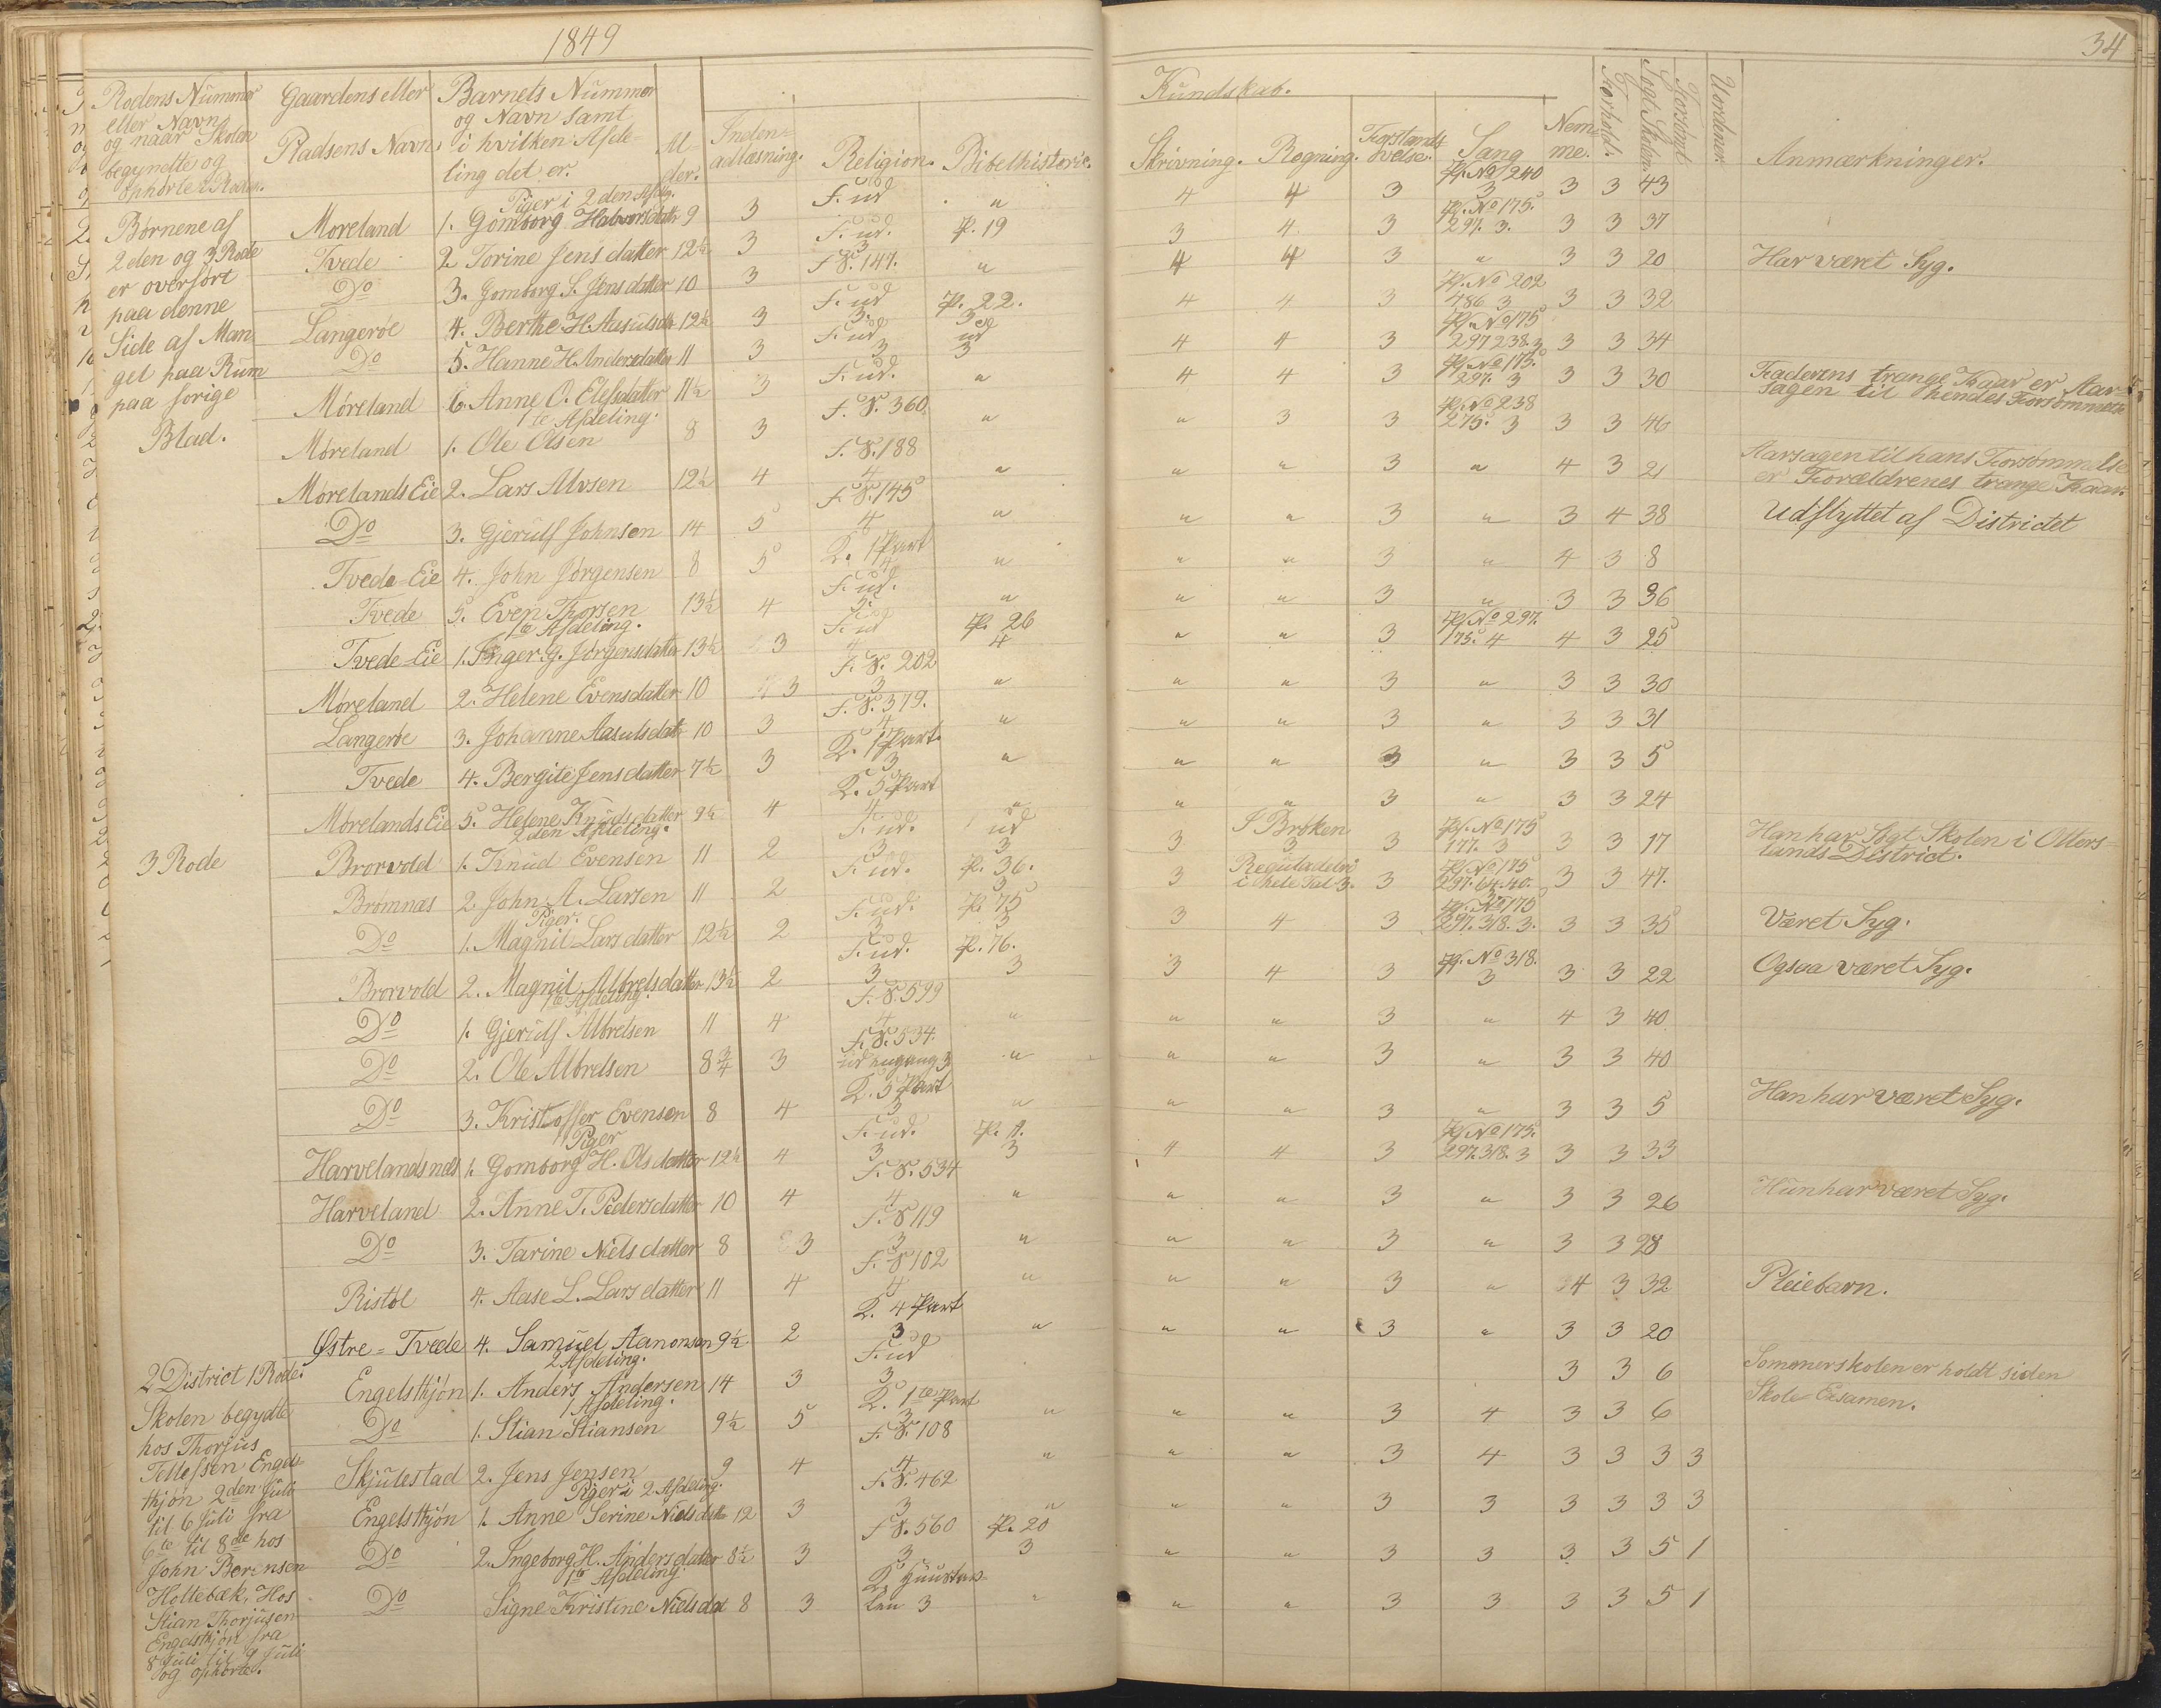 1849
34
Rodens Nummer eller Navn og naar Skolen begyndte og ophørte i Roden.
Gaardens eller Pladsens Navn
Barnets Nummer og Navn samt i hvilken Afdeling det er.
Alder.
Indenadlæsning.
Religion.
Bibelhistorie.
Kundskab.
Skrivning.
Regning.
Forstands øvelse.
Sang
Nemme.
Forhold.
Søgt Skolen
Forsømt
Uordener
Anmærkninger.
Børnene af
2den og 3 Rode
er overført
paa denne
Side af Man
gel paa Rum
paa forige
Blad.
Piger i 2den Afdlg.
Moreland 1. Gomborg Halvorsdatt 9 3 F. ud 3 " 4 4 3 Ps. No 240 3 3 3 43
Tvede 2. Torine Jensdatter 12½ 3 F. ud. 3 P. 19 3 4 3 Ps. No 175. 297. 3. 3 3 37
Do 3. Gomborg S. Jensdatter 10 3 F S. 147. " 4 4 3 " 3 3 20 Har været Syg.
Langerøe 4. Berthe H. Aasulsdtr 12½ 3 F. ud 3. P. 22. 3 4 4 3 Ps. No 202 486 3 3 3 32
Do 5. Hanne H. Andersdatter 11 3 F. ud 3 ud 3 4 4 3 Ps. No 175 297 238. 3 3 3 34
Møreland 6. Anne O. Elefsdatter 11½ 3 F. ud. " 4 4 3 Ps. No 175. 297. 3 3 3 30 Faderens trange Kaar er Aar-
sagen til hendes Forsømmelse
1te Afdeling.
Møreland 1. Ole Olsen 8 3 F. S. 360 " " 3 3 Ps. No 238 275. 3 3 3 46
Mørelands Eie 2. Lars Alvsen 12½ 4 F. S. 188 4 " " " 3 " 4 3 21 Aarsagen til hans Forsømmelse
er Forældrenes trange Kaar.
Do 3. Gjerulf Johnsen 14 5 F. S. 145 4 " " " 3 " 3 4 38 Udflyttet af Districtet
Tvede-Eie 4. John Jørgensen 8 5 K. 1 Part 4 " " " 3 " 4 3 8
Tvede 5. Even Thorsen 13½ 4 F. ud. 3. " " " 3 " 3 3 36
1te Afdeling.
Tvede-Eie 1. Inger G. Jørgensdatter 13½ 3 F. ud 4 P. 26 4 " " 3 Ps. No 297. 175. 4 4 3 25
Møreland 2. Helene Evensdatter 10 3 F. S. 202 3 " " " 3 " 3 3 30
Langerøe 3. Johanne Aasulsdatt 10 3 F. S. 379. 4 " " " 3 " 3 3 31
Tvede 4. Bergite Jensdatter 7½ 3 K. 1 Part. 3 " " " 3 " 3 3 5
Mørelands Eie 5. Helene Knudsdatter 9½ 4 K. 5 Part 4 " " " 3 " 3 3 24
2den Afdeling.
3 Rode Brorvold 1. Knud Evensen 11 2 F. ud. 3 ud 3 3 I Brøken 3 3 Ps. No 175 177. 3 3 3 17 Han har Søgt Skolen i Ollers-
lands District.
Brømnæs 2. John A. Larsen 11 2 F. ud. P. 36. 3 3 Reguladetri i hele Tal 3. 3 Ps. No 175 297. 64. 40. 3 3 3 47.
Piger.
Do 1. Magnil Larsdatter 12½ 2 F. ud. 3 P. 75 3 3 4 3 Ps. No 175 297. 318. 3. 3 3 35 Været Syg.
Brorvold 2. Magnil Albretsdatter 13½ 2 F. ud. 3 P. 76. 3 3 4 3 Ps. No 318. 3 3 3 22 Ogsaa været Syg.
1te Afdeling.
Do 1. Gjerulf Albretsen 11 4 F. S. 599 4 " " " 3 " 4 3 40
Do 2. Ole Albretsen 8¾ 3 F. S. 534. 3 " " " 3 " 3 3 40
Do 3. Kristoffer Evensen 8 4 K. 5 Part 3 " " " 3 " 3 3 5 Han har været Syg.
Piger
Harvelandsnæs 1. Gomborg H. Olsdatter 12½ 4 F. ud. 3 P. 11. 3 4 4 3 Ps. No 175. 297. 318. 3 3 3 33
Harveland 2. Anne T. Pedersdatter 10 4 F. S. 534 4 " " " 3 " 3 3 26 Hun har været Syg.
Do 3. Tarine Nielsdatter 8 3 F. S 119 3 " " " 3 " 3 3 28
Ristøl 4. Aase L. Larsdatter 11 4 F. S 102 4 " " " 3 " 4 3 32 Pleiebarn.
Østre-Tvede 4. Samuel Aanonsen 9½ 2 K. 4 Part 3 " " " 3 " 3 3 20
2 Afdeling.
Engelstkjøn 1. Anders Andersen 14 3 F. ud 3 3 3 6 Sommerskolen er holdt siden
Skole-Examen.
1 Afdeling.
Do 1. Stian Stiansen 9½ 5 K. 1te Part 3 " " " 3 4 3 3 6
Skjulestad 2. Jens Jensen 9 4 F. S. 108 4 " " " 3 4 3 3 3 3
Piger i 2 Afdeling.
Engelstkjøn 1. Anne Serine Nielsdatter 12 3 F. S. 462 3 " " " 3 3 3 3 3 3
Do 2. Ingeborg H. Andersdatter 8½ 3 F S. 560 3 P. 20 3 " " 3 3 3 3 5 1
1te Afdeling.
Do Signe Kristine Nielsdat 8 3 K. Huustav
len 3 " " " 3 3 3 3 5 1
2 District 1 Rode.
Skolen begydte
hos Thorjus
Tellefsen Engels-
tkjøn 2den Juli
til 6 Juli fra
6te til 8de hos
John Berensen
Holtebæk, Hos
Stian Thorjusen
Engelstkjøn fra
8 Juli til 9 Juli
og ophørte.